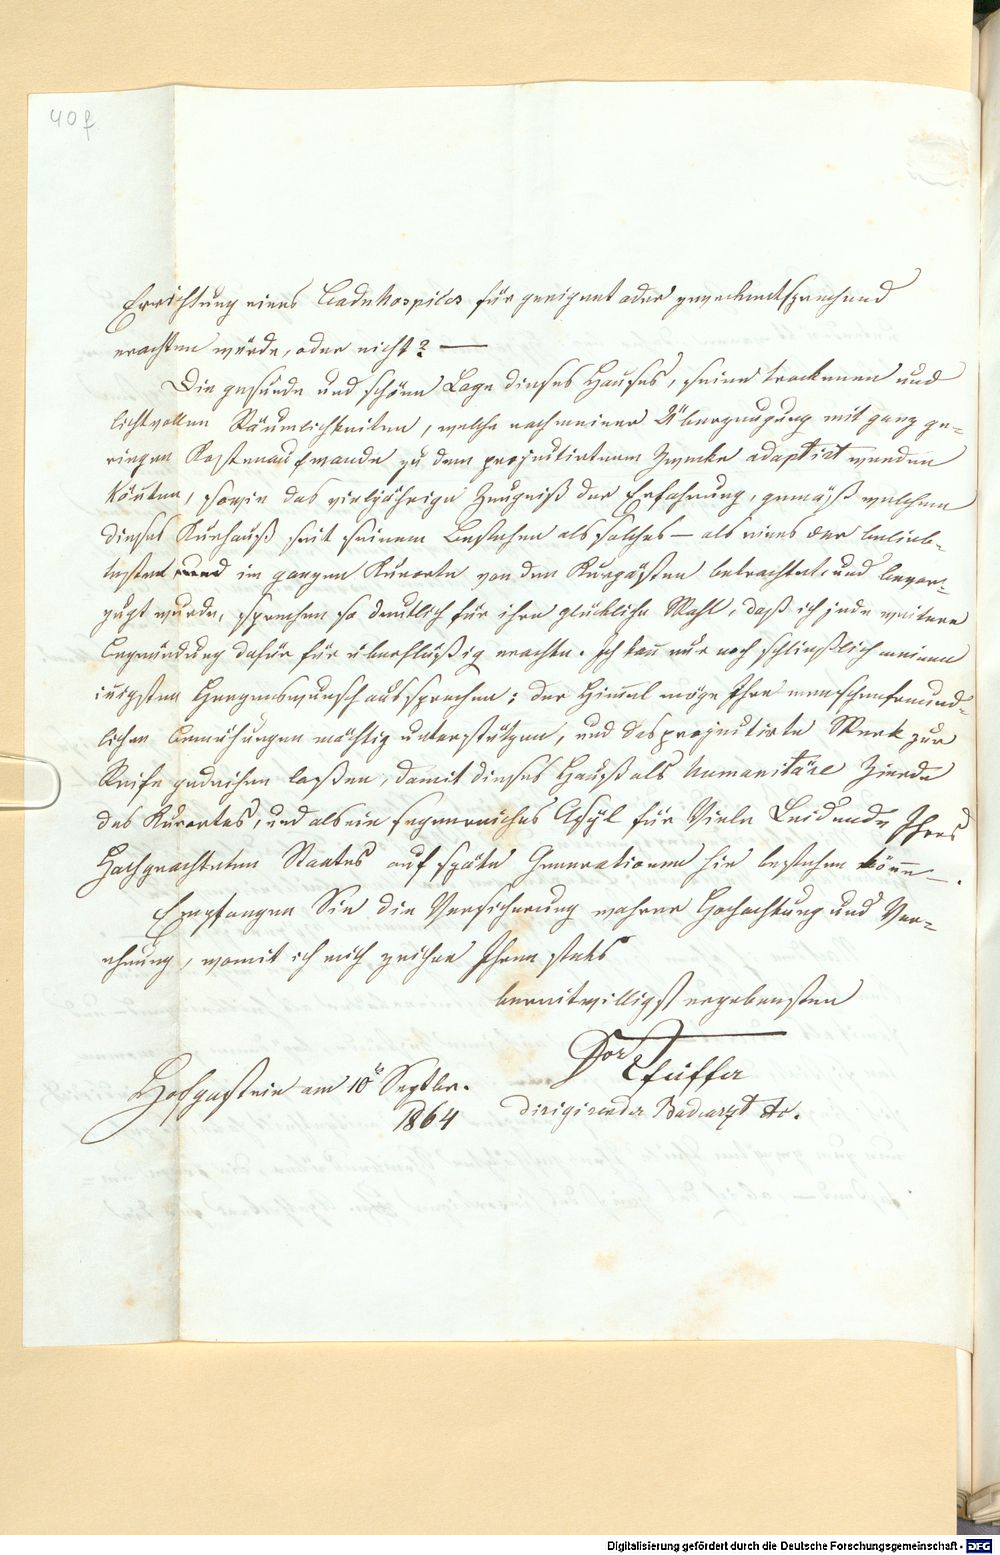 40f
Errichtung eines Badehospices für geeignet oder zweckentsprechend
erachten würde, oder nicht? —
Die gesunde und schöne Lage dieses Hauses, seine trockenen und
lichtvollen Räumlichkeiten, welche nach meiner Überzeugung mit ganz ge-
ringen Kostenaufwande zu dem projectirtem Zwecke adaptirt werden
könten, sowie das vieljährige Zeugniß der Erfahrung, gemäß welchem
dieses Kurhauß seit seinem Bestehen als solches — als eines der belieb-
testen und im ganzen Kurorte von den Kurgästen betrachtet, und bevor-
zugt wurde, sprechen so deutlich für ihre glückliche Wahl, daß ich jede weitere
Begründung dafür für überflüßig erachte. Ich kan̄ nur noch schließlich meinen
in̄igsten Herzenswunsch aussprechen: der Him̄el möge Ihre menschenfreund-
lichen Bemühungen mächtig unterstützen, und das projectirte Werk zur
Reife gedeihen laßen, damit dieses Hauß als humanitäre Zierde
des Kurortes, und als ein segenreiches Asyl für Viele Leidende Ihres
Hochgeachteten Staates auf späte Generationen hin bestehen kön̄e —.
Empfangen Sie die Versicherung wahrer Hochachtung und Ver-
ehrung, womit ich mich zeichne Ihren stets
bereitwilligst ergebensten
Dor Pfeiffer
Hofgastein am 10te Septbr.
1864
dirigirender Badearzt etc.
Digitalisierung gefördert durch die Deutsche Forschungsgemeinschaft - DFG